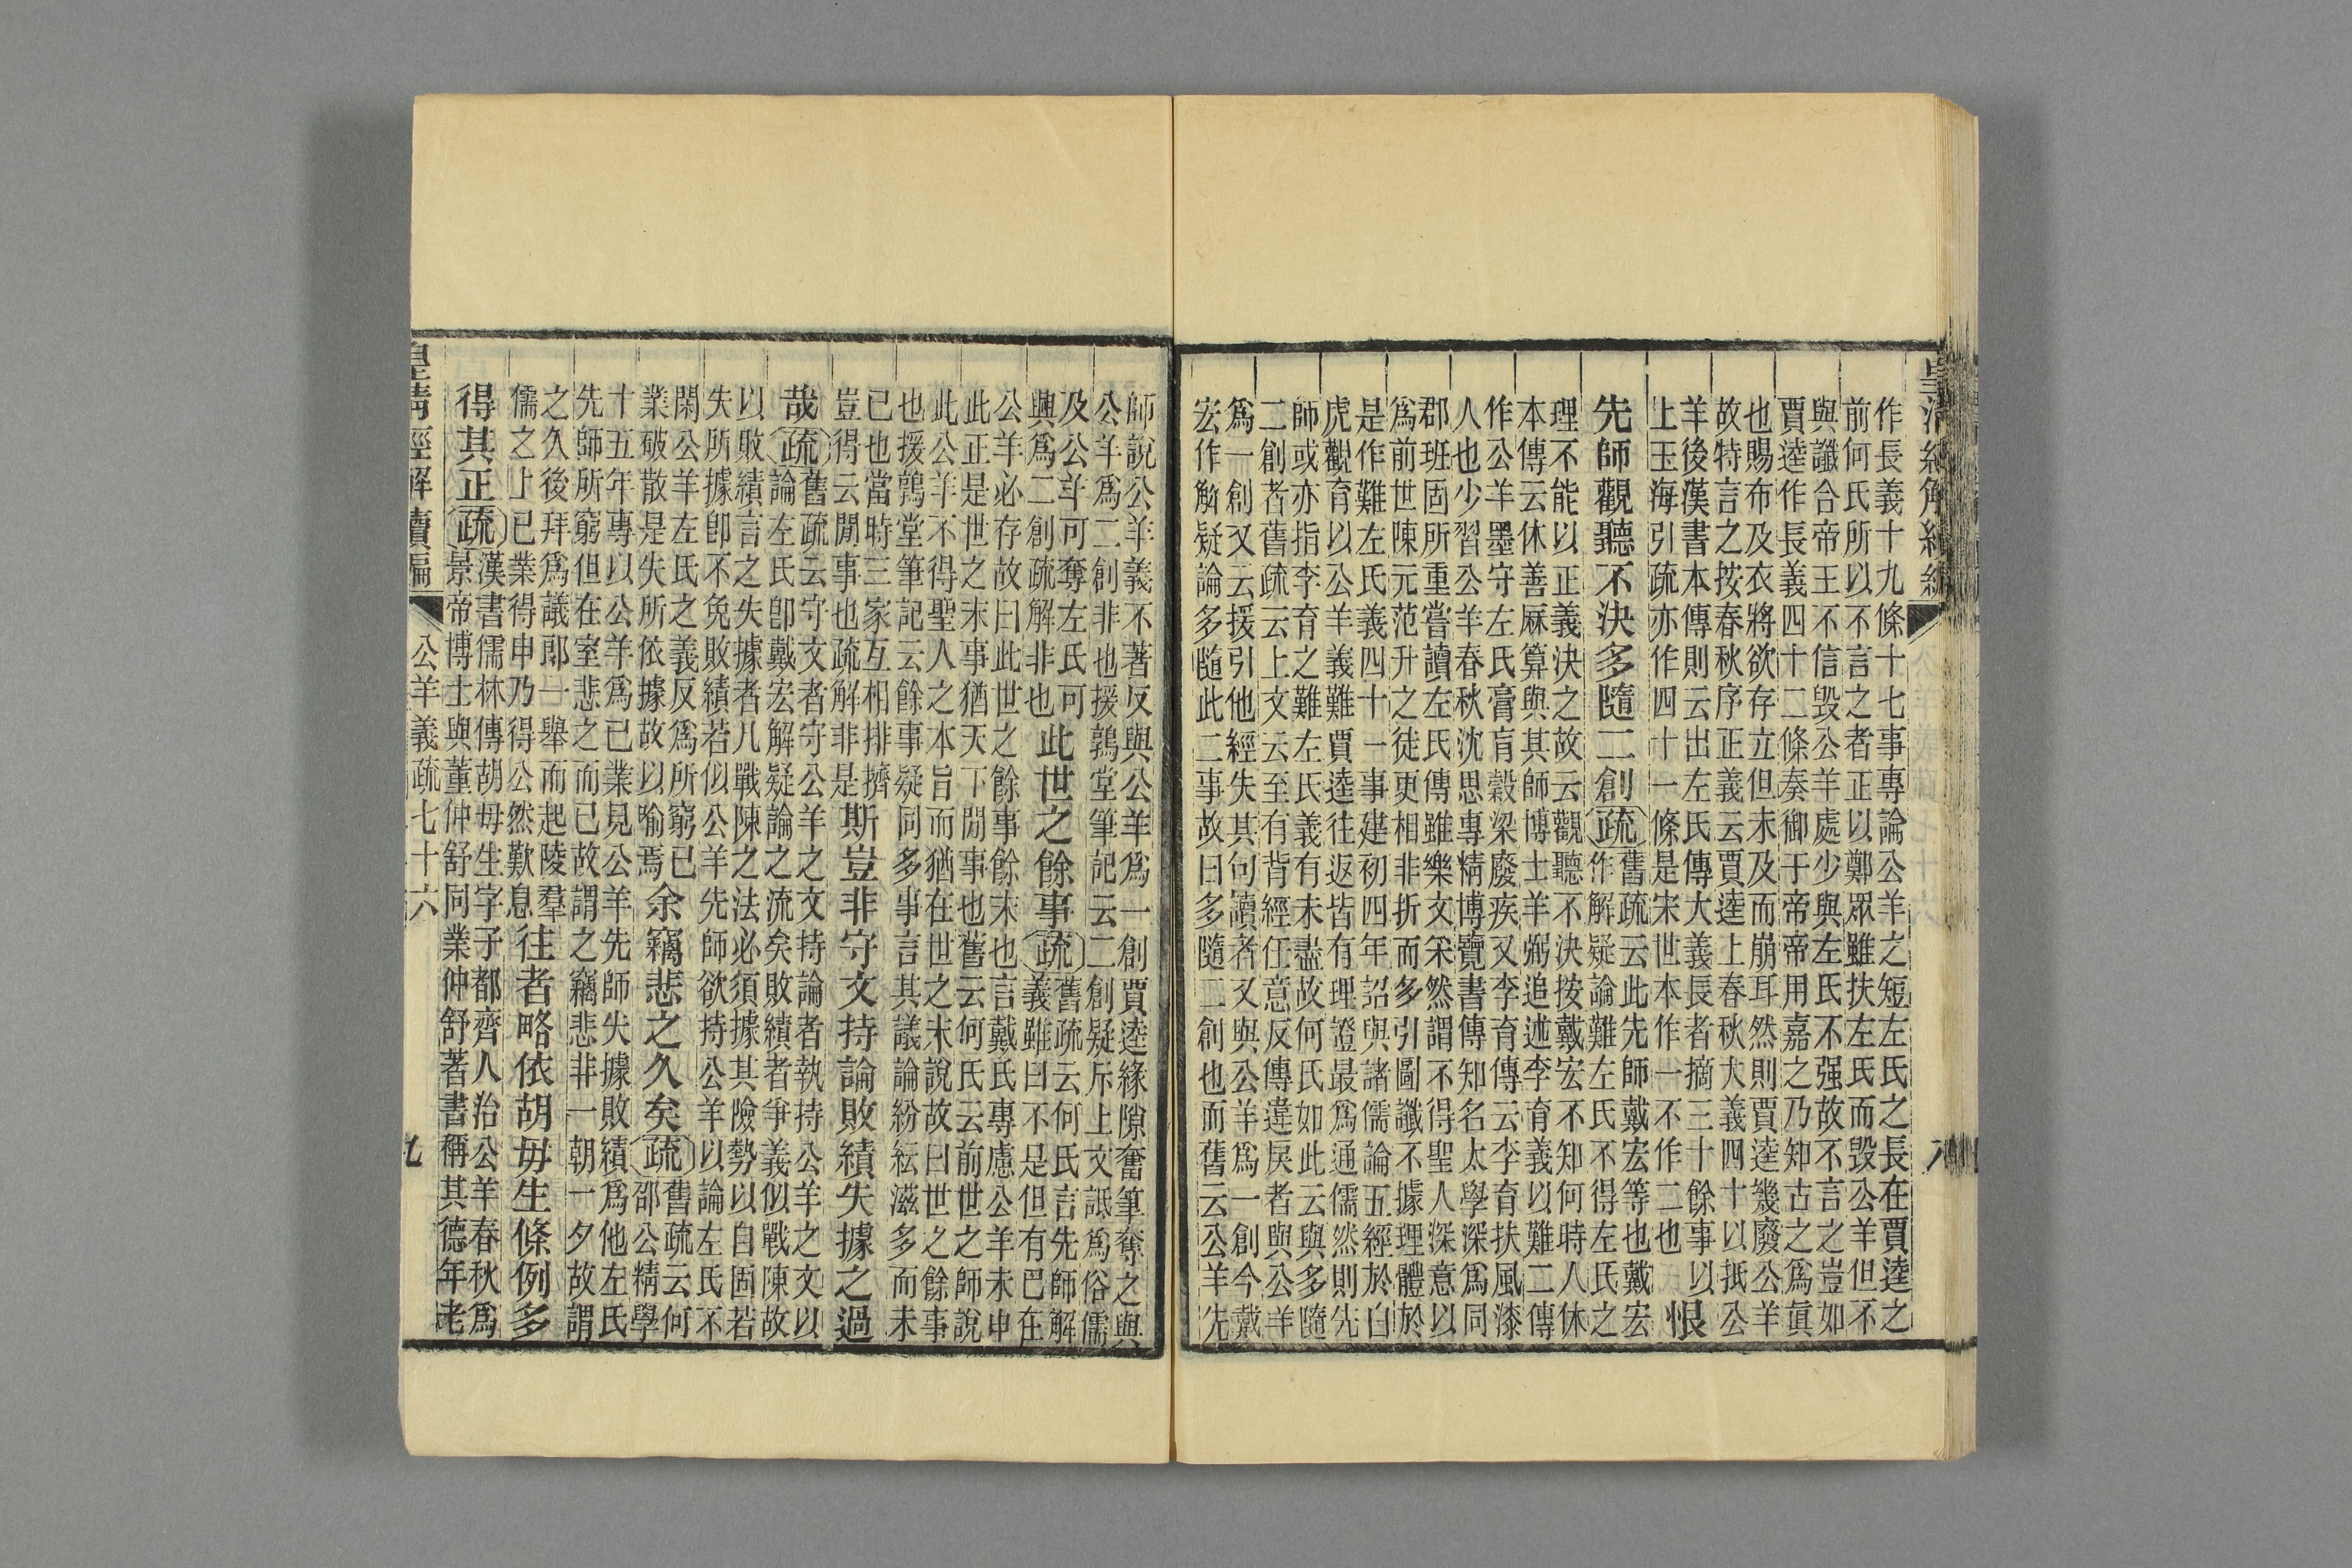 作長義十九條十七事專論公羊之短左氏之長在賈逵之
前何氏所以不言之者正以鄭眾雖扶左氏而毀公羊但不
與讖合帝王不信毀公羊處少與左氏不强故不言之豈如
賈逵作長義四十二條奏御于帝帝用嘉之乃知古之爲眞
也賜布及衣將欲存立但未及而崩耳然則賈逵幾廢公羊
故特言之按春秋序正義云賈逵上春秋大義四十以抵公
羊後漢書本傳則云出左氏傳大義長者摘三十餘事以
上玉海引疏亦作四十一條是宋世本作一不作二也
恨
先師觀聽不決多隨二創疏
舊疏云此先師戴宏等也戴宏
作解疑論難左氏不得左氏之
理不能以正義決之故云觀聽不決按戴宏不知何時人休
本傳云休善厤算與其師博士羊弼追述李育義以難二傳
作公羊墨守左氏膏肓穀梁廢疾又李育傳云李育扶風漆
人也少習公羊春秋沈思專精博覽書傳知名太學深爲同
郡班固所重嘗讀左氏傳雖樂文采然謂不得聖人深意以
爲前世陳元范升之徒更相非折而多引圖讖不據理體於
是作難左氏義四十一事建初四年詔與諸儒論五經於白
虎觀育以公羊義難賈逵往返皆有理證最爲通儒然則先
師或亦指李育之難左氏義有未盡故何氏如此云與多隨
二創者舊疏云上文云至有背經任意反傳違戾者與公羊
爲一創又云援引他經失其句讀者又與公羊爲一創今戴
宏作解疑論多隨此二事故曰多隨二創也而舊云公羊先
師說公羊義不著反與公羊爲一創賈逵緣隙奮筆奪之與
公羊爲二創非也援鶉堂筆記云二創疑斥上文詆爲俗儒
及公羊可奪左氏可
興爲二創疏解非也
此世之餘事疏
舊疏云何氏言先師解
義雖曰不是但有已在
公羊必存故曰此世之餘事餘末也言戴氏專慮公羊未申
此正是世之末事猶天下閒事也舊云何氏云前世之師說
此公羊不得聖人之本旨而猶在世之末說故曰世之餘事
也援鶉堂筆記云餘事疑同多事言其議論紛紜滋多而未
已也當時三家互相排擠
豈得云閒事也疏解非是
斯豈非守文持論敗績失據之過
哉疏
舊疏云守文者守公羊之文持論者執持公羊之文以
論左氏卽戴宏解疑論之流矣敗績者爭義似戰陳故
以敗績言之失據者凡戰陳之法必須據其險勢以自固若
失所據卽不免敗績若似公羊先師欲持公羊以論左氏不
閑公羊左氏之義反爲所窮已
業破散是失所依據故以喻焉
余竊悲之久矣疏
舊疏云何
邵公精學
十五年專以公羊爲已業見公羊先師失據敗績爲他左氏
先師所窮但在室悲之而已故謂之竊悲非一朝一夕故謂
之久後拜爲議郎一舉而起陵羣
儒之上已業得申乃得公然歎息
往者略依胡毋生條例多
得其正疏
漢書儒林傳胡毋生字子都齊人治公羊春秋爲
景帝博士與董仲舒同業仲舒著書稱其德年老
皇清經解續編 公羊義疏七十六 九